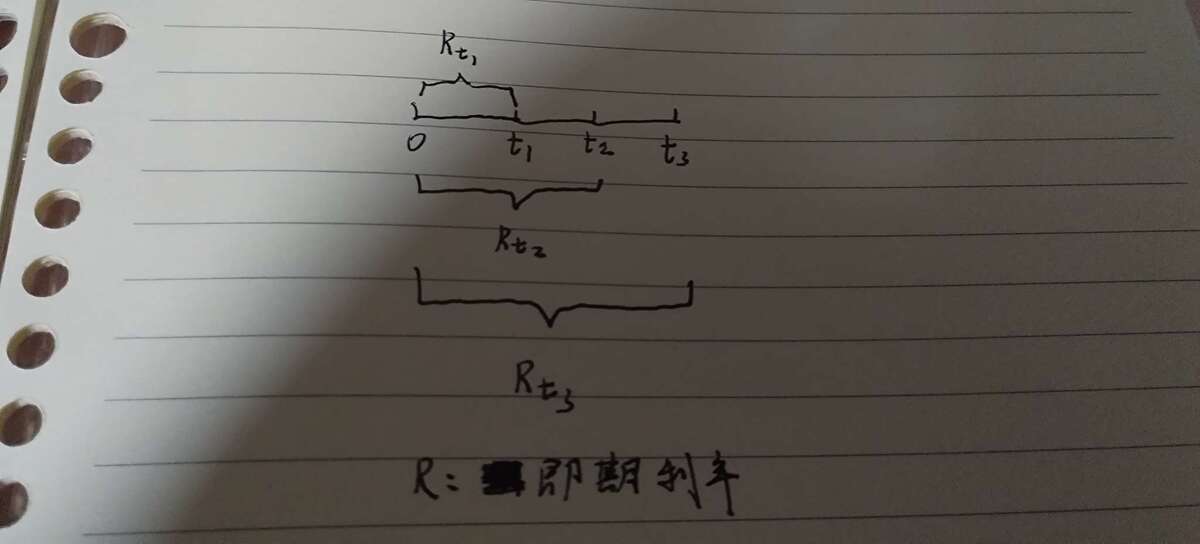 Rt₁
0 t₁ t₂ t₃
Rt₂
Rt₃
R: 即期利率